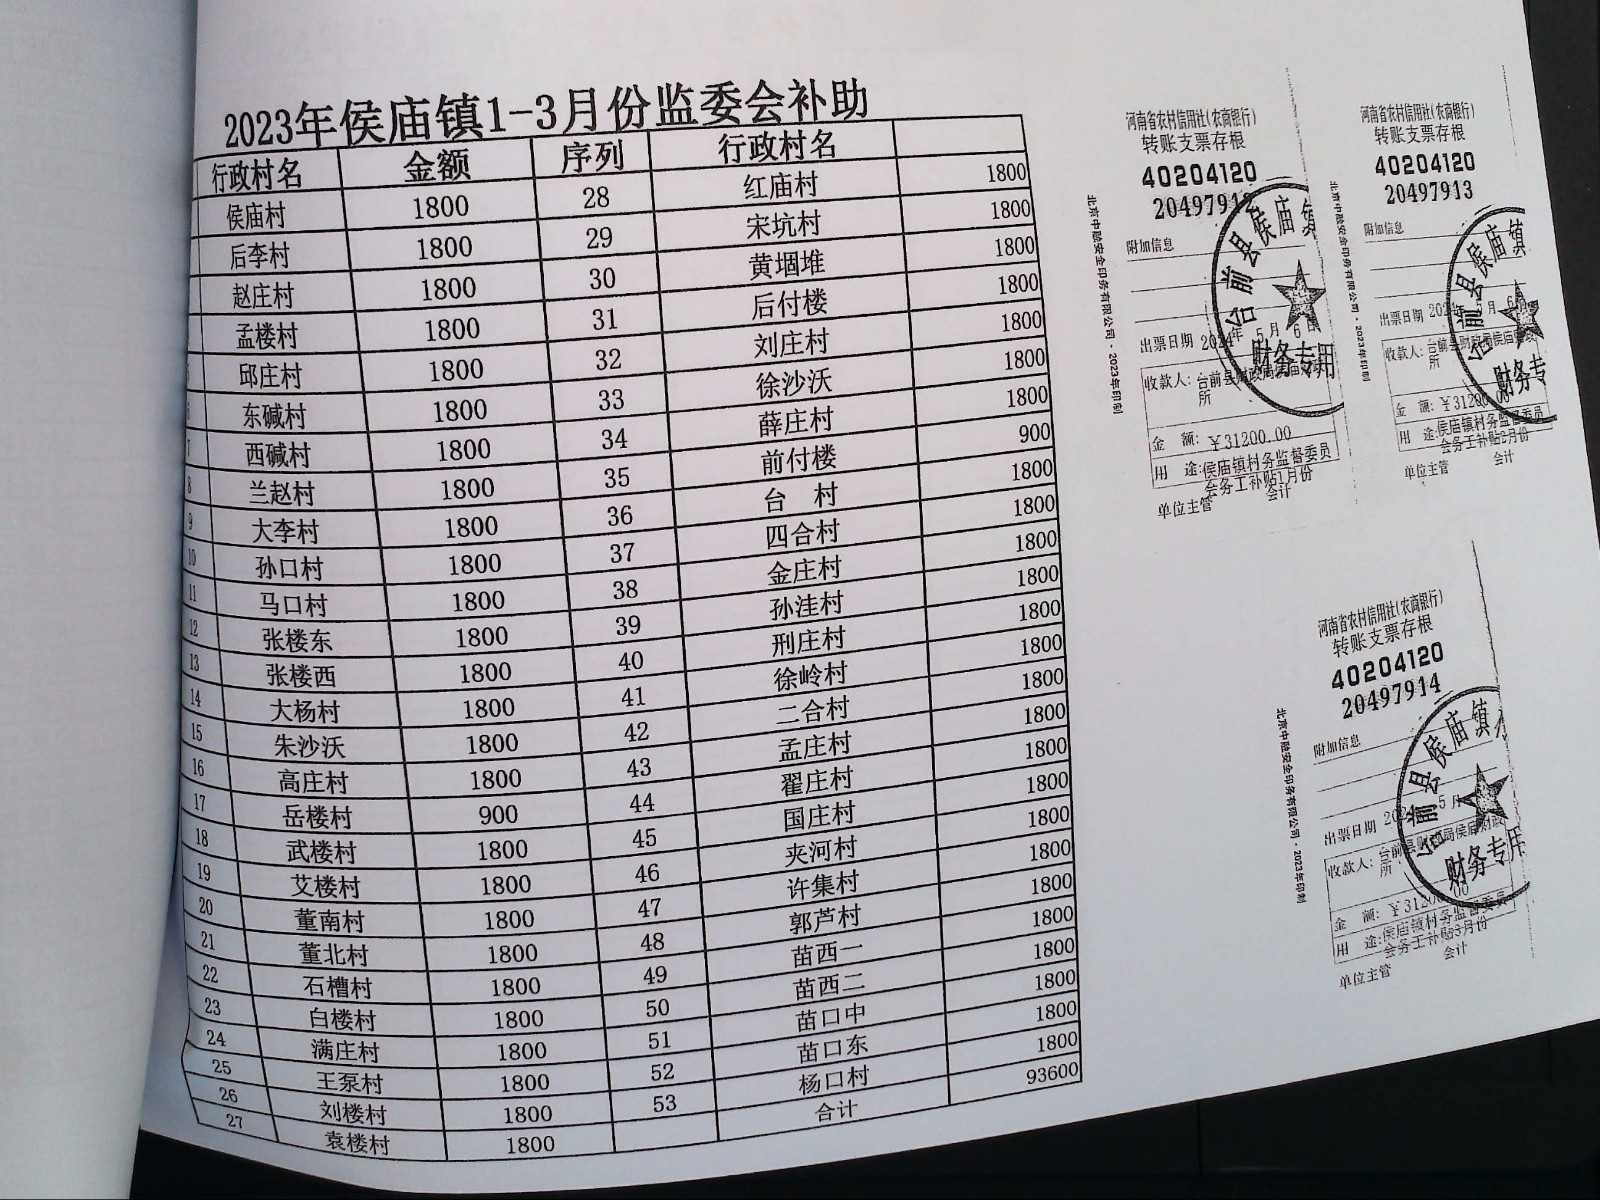 2023年侯庙镇1-3月份监委会补助
行政村名 金额 序列 行政村名
侯庙村 1800 28 红庙村 1800
后李村 1800 29 宋坑村 1800
赵庄村 1800 30 黄堌堆 1800
孟楼村 1800 31 后付楼 1800
邱庄村 1800 32 刘庄村 1800
东碱村 1800 33 徐沙沃 1800
7 西碱村 1800 34 薛庄村 1800
8 兰赵村 1800 35 前付楼 900
9 大李村 1800 36 台 村 1800
10 孙口村 1800 37 四合村 1800
11 马口村 1800 38 金庄村 1800
12 张楼东 1800 39 孙洼村 1800
13 张楼西 1800 40 刑庄村 1800
14 大杨村 1800 41 徐岭村 1800
15 朱沙沃 1800 42 二合村 1800
16 高庄村 1800 43 孟庄村 1800
17 岳楼村 900 44 翟庄村 1800
18 武楼村 1800 45 国庄村 1800
19 艾楼村 1800 46 夹河村 1800
20 董南村 1800 47 许集村 1800
21 董北村 1800 48 郭芦村 1800
22 石槽村 1800 49 苗西一 1800
23 白楼村 1800 50 苗西二 1800
24 满庄村 1800 51 苗口中 1800
25 王泵村 1800 52 苗口东 1800
26 刘楼村 1800 53 杨口村 1800
27 袁楼村 1800 合计 93600
河南省农村信用社(农商银行)
转账支票存根
40204120
2049791
附加信息
出票日期 2024年 5月 6日
收款人: 台前县财政局侯庙财政
所
金 额: ¥31200.00
用 途:侯庙镇村务监督委员
会务工补贴1月份
单位主管 会计
北京中融安全印务有限公司·2023年印制
台前县侯庙镇
财务专用
河南省农村信用社(农商银行)
转账支票存根
40204120
20497913
附加信息
出票日期 2024年 5月 6日
收款人: 台前县财政局侯庙财政
所
金 额: ¥31200.00
用 途:侯庙镇村务监督委员
会务工补贴2月份
单位主管 会计
北京中融安全印务有限公司·2023年印制
台前县侯庙镇
财务专
河南省农村信用社(农商银行)
转账支票存根
40204120
20497914
附加信息
出票日期 202 5月
收款人: 台前县财政局侯庙财政
所
金 额: ¥31200.00
用 途:侯庙镇村务监督委员
会务工补贴3月份
单位主管 会计
北京中融安全印务有限公司·2023年印制
台前县侯庙镇
财务专用